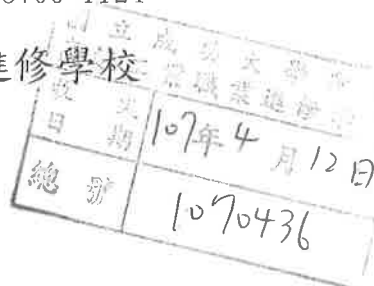 進修學校
國立成功大學附
業職業進修
收文
日期
107年4月12日
總號
1070436